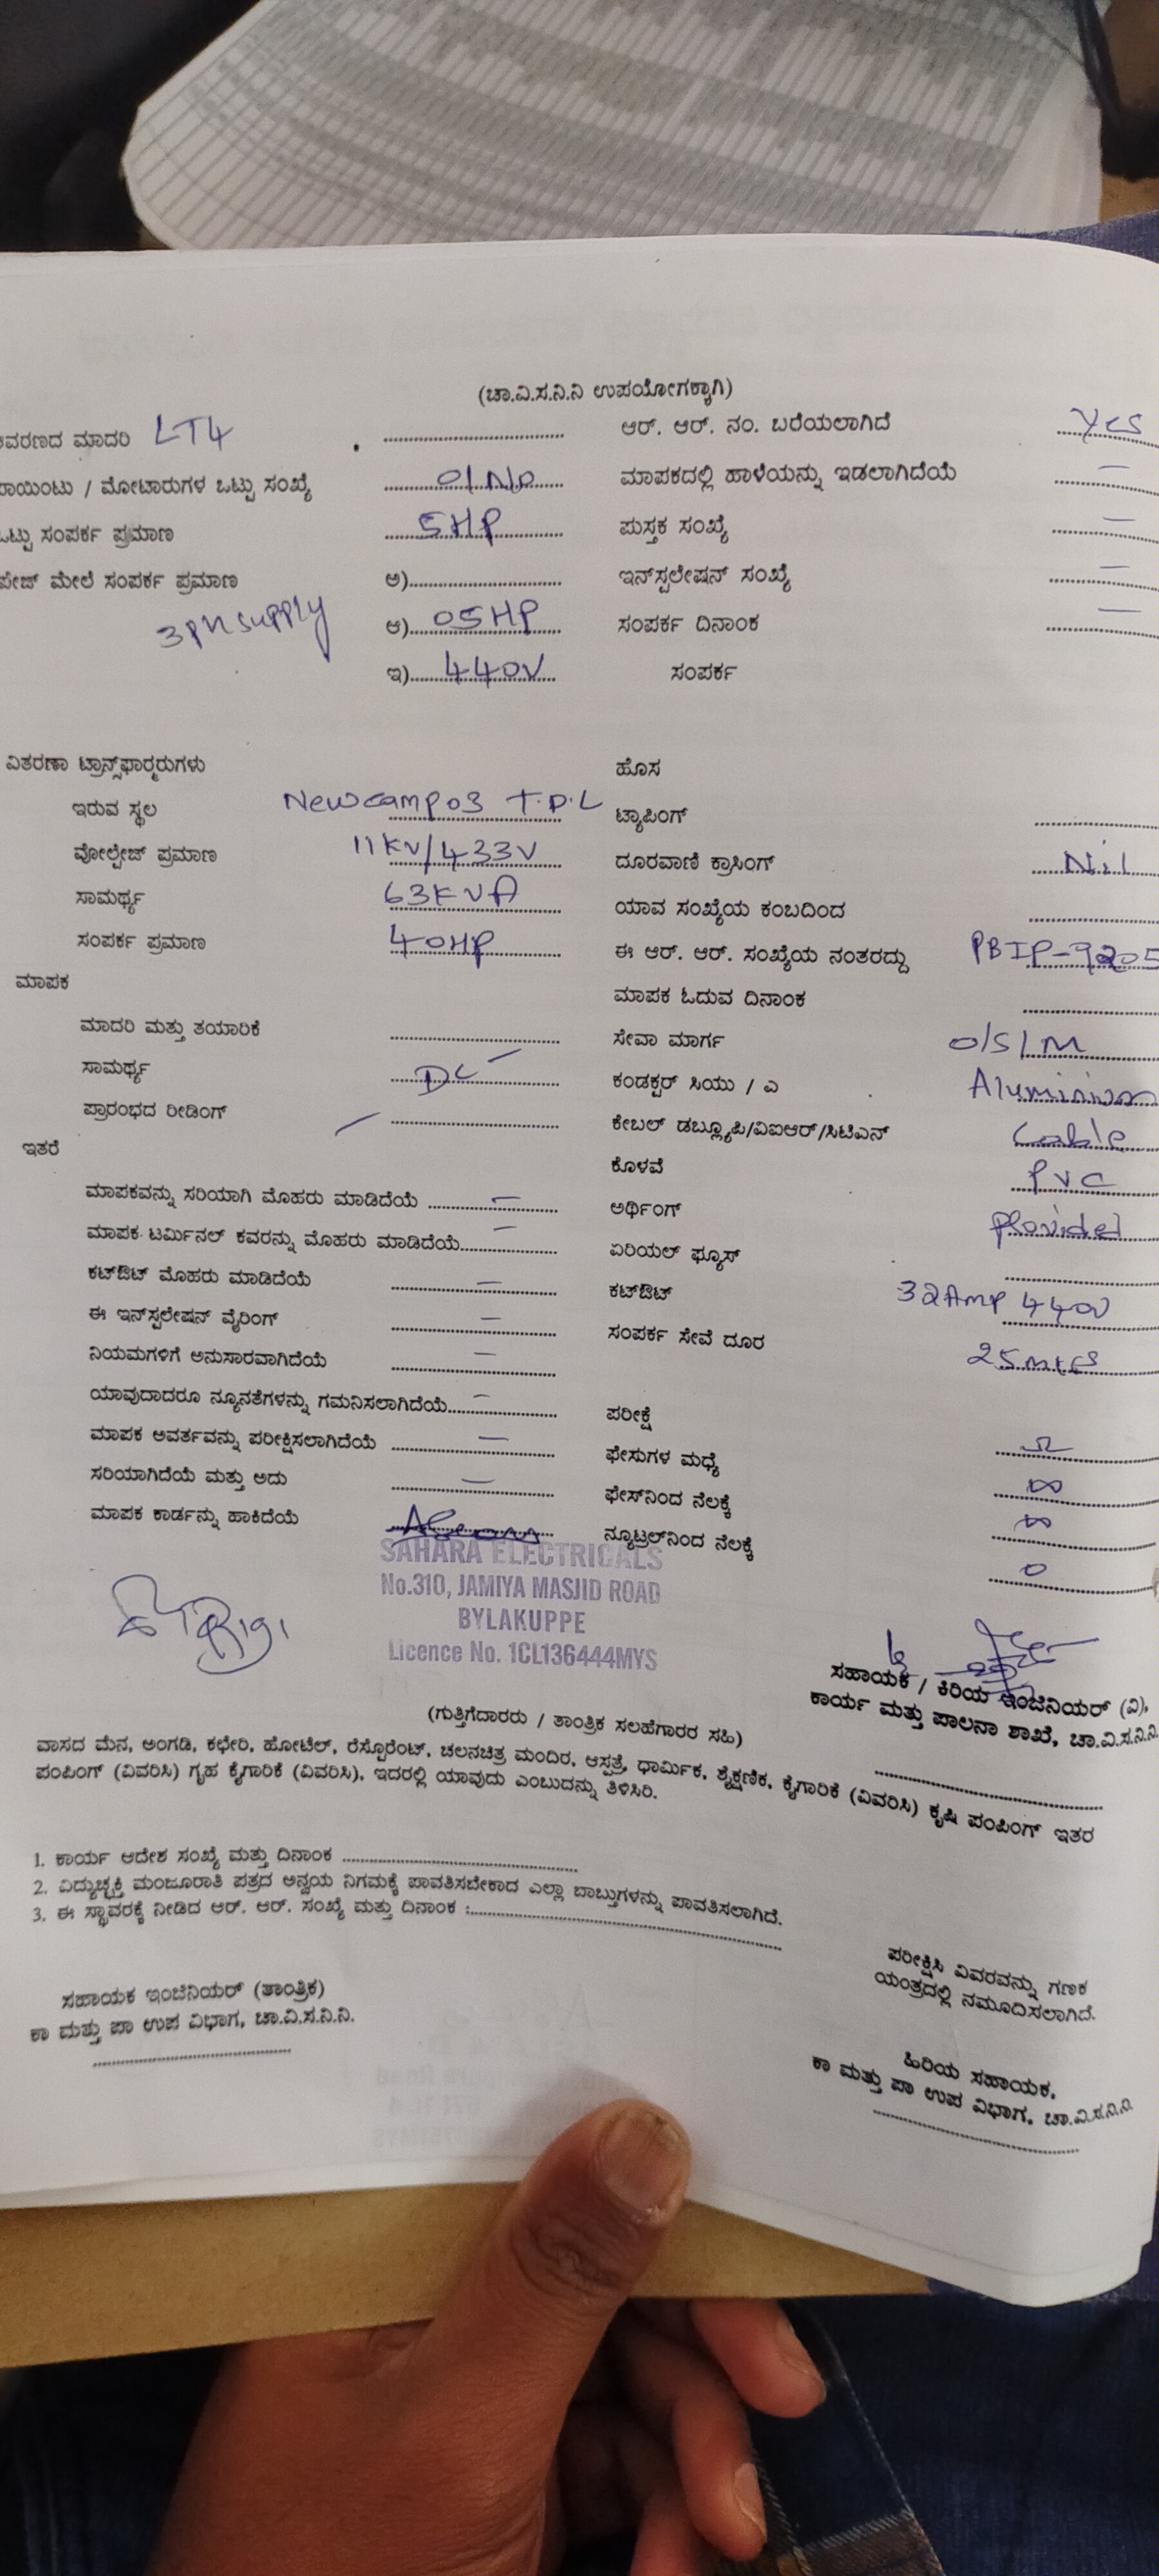 (ಚಾ.ವಿ.ಸ.ನಿ.ನಿ ಉಪಯೋಗಕ್ಕಾಗಿ)
ಮಾದರಿ LT4 ಆರ್. ಆರ್. ನಂ. ಬರೆಯಲಾಗಿದೆ Yes
/ ಮೋಟಾರುಗಳ ಒಟ್ಟು ಸಂಖ್ಯೆ 01 No ಮಾಪಕದಲ್ಲಿ ಹಾಳೆಯನ್ನು ಇಡಲಾಗಿದೆಯೆ —
ಸಂಪರ್ಕ ಪ್ರಮಾಣ 5HP ಪುಸ್ತಕ ಸಂಖ್ಯೆ —
ಮೇಲೆ ಸಂಪರ್ಕ ಪ್ರಮಾಣ ಅ) ಇನ್‌ಸ್ಟಲೇಷನ್ ಸಂಖ್ಯೆ —
3PH supply ಆ) 05HP ಸಂಪರ್ಕ ದಿನಾಂಕ —
ಇ) 440V ಸಂಪರ್ಕ
ವಿತರಣಾ ಟ್ರಾನ್ಸ್‌ಫಾರ್ಮರುಗಳು ಹೊಸ
ಇರುವ ಸ್ಥಲ New camp 03 T.D.L ಟ್ಯಾಪಿಂಗ್
ವೋಲ್ಟೇಜ್ ಪ್ರಮಾಣ 11KV/433V ದೂರವಾಣಿ ಕ್ರಾಸಿಂಗ್ Nil
ಸಾಮರ್ಥ್ಯ 63KVA ಯಾವ ಸಂಖ್ಯೆಯ ಕಂಬದಿಂದ
ಸಂಪರ್ಕ ಪ್ರಮಾಣ 40HP ಈ ಆರ್. ಆರ್. ಸಂಖ್ಯೆಯ ನಂತರದ್ದು PBIP-9205
ಮಾಪಕ ಮಾಪಕ ಓದುವ ದಿನಾಂಕ
ಮಾದರಿ ಮತ್ತು ತಯಾರಿಕೆ ಸೇವಾ ಮಾರ್ಗ O/S/M
ಸಾಮರ್ಥ್ಯ DC ಕಂಡಕ್ಟರ್ ಸಿಯು / ಎ Aluminium
ಪ್ರಾರಂಭದ ರೀಡಿಂಗ್ ಕೇಬಲ್ ಡಬ್ಲ್ಯೂಪಿ/ವಿಐಆರ್/ಸಿಟಿಎಸ್ Cable
ಇತರೆ ಕೊಳವೆ PVC
ಮಾಪಕವನ್ನು ಸರಿಯಾಗಿ ಮೊಹರು ಮಾಡಿದೆಯೆ — ಅರ್ಥಿಂಗ್ Provided
ಮಾಪಕ ಟರ್ಮಿನಲ್ ಕವರನ್ನು ಮೊಹರು ಮಾಡಿದೆಯೆ — ಏರಿಯಲ್ ಫ್ಯೂಸ್
ಕಟ್‌ಔಟ್ ಮೊಹರು ಮಾಡಿದೆಯೆ — ಕಟ್‌ಔಟ್ 32Amp 440V
ಈ ಇನ್‌ಸ್ಟಲೇಷನ್ ವೈರಿಂಗ್ — ಸಂಪರ್ಕ ಸೇವೆ ದೂರ 25mts
ನಿಯಮಗಳಿಗೆ ಅನುಸಾರವಾಗಿದೆಯೆ —
ಯಾವುದಾದರೂ ನ್ಯೂನತೆಗಳನ್ನು ಗಮನಿಸಲಾಗಿದೆಯೆ — ಪರೀಕ್ಷೆ
ಮಾಪಕ ಅವರ್ತವನ್ನು ಪರೀಕ್ಷಿಸಲಾಗಿದೆಯೆ — ಫೇಸುಗಳ ಮಧ್ಯೆ Ω
ಸರಿಯಾಗಿದೆಯೆ ಮತ್ತು ಅದು — ಫೇಸ್‌ನಿಂದ ನೆಲಕ್ಕೆ ∞
ಮಾಪಕ ಕಾರ್ಡನ್ನು ಹಾಕಿದೆಯೆ ನ್ಯೂಟ್ರಲ್‌ನಿಂದ ನೆಲಕ್ಕೆ ∞
0
SAHARA ELECTRICALS
No.310, JAMIYA MASJID ROAD
BYLAKUPPE
Licence No. 1CL136444MYS
ಸಹಾಯಕ / ಕಿರಿಯ ಇಂಜಿನಿಯರ್ (ವಿ),
ಕಾರ್ಯ ಮತ್ತು ಪಾಲನಾ ಶಾಖೆ, ಚಾ.ವಿ.ಸ.ನಿ.ನಿ.
(ಗುತ್ತಿಗೆದಾರರು / ತಾಂತ್ರಿಕ ಸಲಹೆಗಾರರ ಸಹಿ)
ವಾಸದ ಮೆನ, ಅಂಗಡಿ, ಕಛೇರಿ, ಹೋಟೆಲ್, ರೆಸ್ಟೋರೆಂಟ್, ಚಲನಚಿತ್ರ ಮಂದಿರ, ಆಸ್ಪತ್ರೆ, ಧಾರ್ಮಿಕ, ಶೈಕ್ಷಣಿಕ, ಕೈಗಾರಿಕೆ (ವಿವರಿಸಿ) ಕೃಷಿ ಪಂಪಿಂಗ್ ಇತರ
ಪಂಪಿಂಗ್ (ವಿವರಿಸಿ) ಗೃಹ ಕೈಗಾರಿಕೆ (ವಿವರಿಸಿ), ಇದರಲ್ಲಿ ಯಾವುದು ಎಂಬುದನ್ನು ತಿಳಿಸಿರಿ.
1. ಕಾರ್ಯ ಆದೇಶ ಸಂಖ್ಯೆ ಮತ್ತು ದಿನಾಂಕ
2. ವಿದ್ಯುಚ್ಛಕ್ತಿ ಮಂಜೂರಾತಿ ಪತ್ರದ ಅನ್ವಯ ನಿಗಮಕ್ಕೆ ಪಾವತಿಸಬೇಕಾದ ಎಲ್ಲಾ ಬಾಬ್ತುಗಳನ್ನು ಪಾವತಿಸಲಾಗಿದೆ.
3. ಈ ಸ್ಥಾವರಕ್ಕೆ ನೀಡಿದ ಆರ್. ಆರ್. ಸಂಖ್ಯೆ ಮತ್ತು ದಿನಾಂಕ :
ಪರೀಕ್ಷಿಸಿ ವಿವರವನ್ನು ಗಣಕ
ಯಂತ್ರದಲ್ಲಿ ನಮೂದಿಸಲಾಗಿದೆ.
ಸಹಾಯಕ ಇಂಜಿನಿಯರ್ (ತಾಂತ್ರಿಕ)
ಕಾ ಮತ್ತು ಪಾ ಉಪ ವಿಭಾಗ, ಚಾ.ವಿ.ಸ.ನಿ.ನಿ.
ಹಿರಿಯ ಸಹಾಯಕ,
ಕಾ ಮತ್ತು ಪಾ ಉಪ ವಿಭಾಗ, ಚಾ.ವಿ.ಸ.ನಿ.ನಿ.